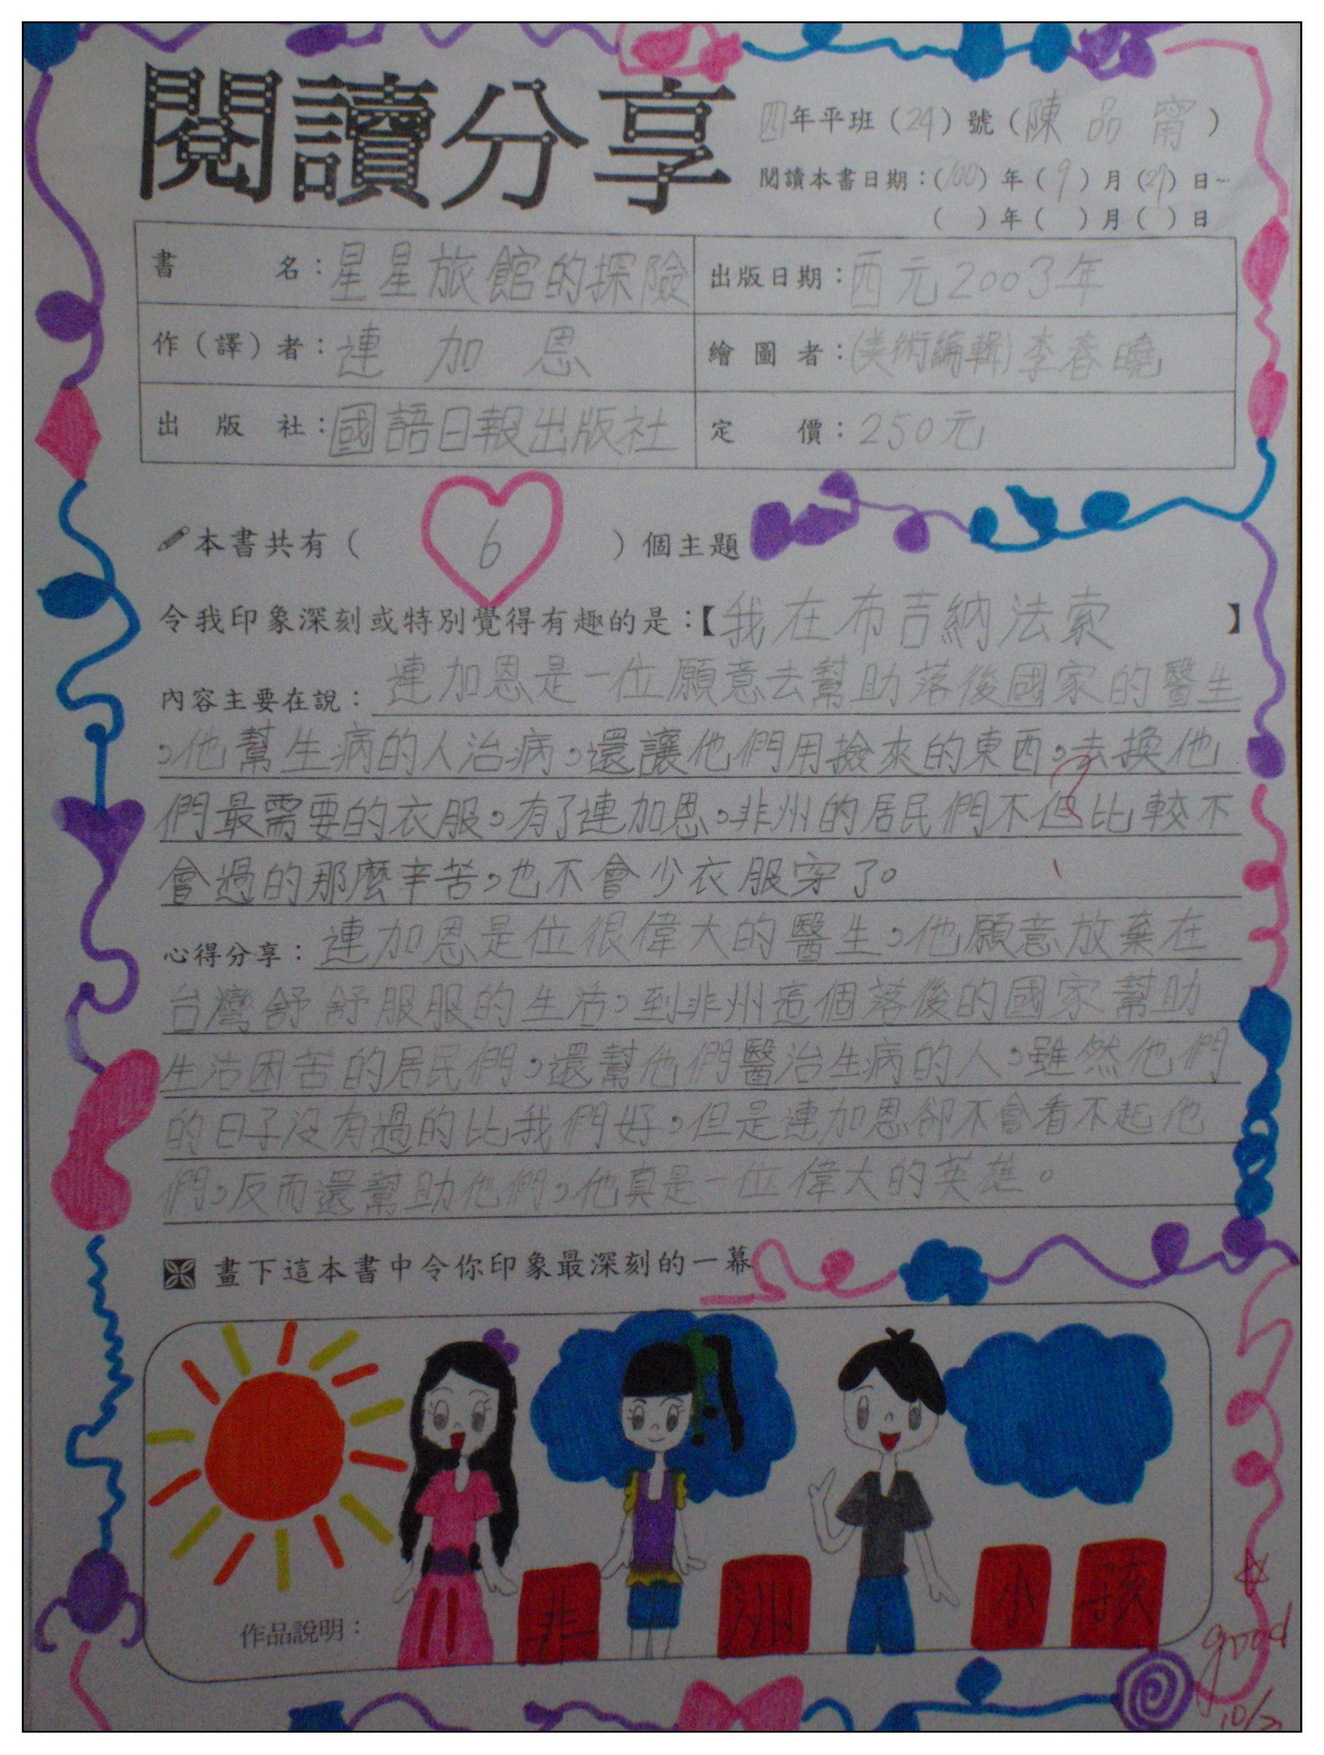 閱讀分享
四年平班(24)號(陳品甯)
閱讀本書日期:(100)年(9)月(29)日~
( )年( )月( )日
書名:星星旅館的探險
出版日期:西元2003年
作(譯)者:連加恩
繪圖者:(美術編輯)李春曉
出版社:國語日報出版社
定價:250元
本書共有(6)個主題
令我印象深刻或特別覺得有趣的是:【我在布吉納法索】
內容主要在說:連加恩是一位願意去幫助落後國家的醫生
,他幫生病的人治病,還讓他們用撿來的東西,去換他
們最需要的衣服,有了連加恩,非州的居民們不但比較不
會過的那麼辛苦,也不會少衣服穿了。
心得分享:連加恩是位很偉大的醫生,他願意放棄在
台灣舒舒服服的生活,到非州這個落後的國家幫助
生活困苦的居民們,還幫他們醫治生病的人,雖然他們
的日子沒有過的比我們好,但是連加恩卻不會看不起他
們,反而還幫助他們,他真是一位偉大的英雄。
畫下這本書中令你印象最深刻的一幕
作品說明:
非洲小孩
good